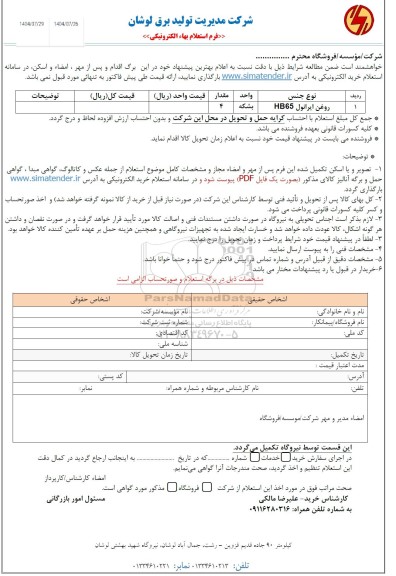 1404/07/29
1404/07/26
شرکت مدیریت تولید برق لوشان
<<فرم استعلام بهاء الکترونیکی>>
شرکت/مؤسسه/فروشگاه محترم ...............
خواهشمند است ضمن مطالعه شرایط ذیل با دقت نسبت به اعلام بهترین پیشنهاد خود در این برگ اقدام و پس از مهر ، امضاء و اسکن، در سامانه
استعلام خرید الکترونیکی به آدرس www.simatender.ir بارگذاری نمایید. ارائه قیمت طی پیش فاکتور به تنهائی مورد قبول نمی باشد.
ردیف نوع جنس واحد مقدار قیمت واحد (ریال) قیمت کل(ریال) توضیحات
۱ روغن ایرانول HB65 بشکه ۴
* جمع کل مبلغ استعلام با احتساب کرایه حمل و تحویل در محل این شرکت و بدون احتساب ارزش افزوده لحاظ و درج گردد.
* کلیه کسورات قانونی بعهده فروشنده می باشد.
* فروشنده می بایست در پیشنهاد قیمت خود نسبت به اعلام زمان تحویل کالا اقدام نماید.
* توضیحات:
۱- تصویر و یا اسکن تکمیل شده این فرم پس از مهر و امضاء مجاز و مشخصات کامل موضوع استعلام از جمله عکس و کاتالوگ، گواهی مبدا ، گواهی
حمل و برگه آنالیز کالای مذکور (بصورت یک فایل PDF) پیوست شود و در سامانه استعلام خرید الکترونیکی به آدرس www.simatender.ir
بارگذاری گردد.
۲- کل بهای کالا پس از تحویل و تأئید فنی توسط کارشناس این شرکت (در صورت نیاز قبل از خرید از کالا نمونه گرفته خواهد شد) و اخذ صورتحساب
و کسر کلیه کسورات قانونی پرداخت می شود.
۳- لازم بذکر است اجناس تحویلی به نیروگاه در صورت داشتن مستندات فنی و اصالت کالا مورد تأیید قرار خواهد گرفت و در صورت نقصان و داشتن
هر گونه اشکال، کالا عودت داده خواهد شد و خسارت ایجاد شده به تجهیزات نیروگاهی و همچنین هزینه حمل بر عهده تأمین کننده کالا خواهد بود.
۳- لطفاً در پیشنهاد قیمت خود شرایط پرداخت و زمان تحویل را درج نمایید.
۴- مشخصات فنی را به پیوست ارسال نمایید.
۵- مشخصات دقیق از قبیل آدرس و شماره تماس فرم پیش فاکتور درج شود و حتماً خوانا باشد.
۶-خریدار در قبول یا رد پیشنهادات مختار می باشد.
مشخصات ذیل در برگه استعلام و صورتحساب الزامی است
ParsNamadData
اشخاص حقیقی اشخاص حقوقی
نام و نام خانوادگی: نام مؤسسه/شرکت:
نام فروشگاه/پیمانکار: شماره ثبت شرکت:
کد ملی: کد اقتصادی:
شناسه ملی:
تاریخ تکمیل: تاریخ تحویل کالا:
مدت اعتبار قیمت :
آدرس: کد پستی:
تلفن: نام کارشناس مربوطه و شماره همراه: نمابر:
امضاء مدیر و مهر شرکت/موسسه/فروشگاه
این قسمت توسط نیروگاه تکمیل می‌گردد.
در اجرای سفارش خرید خدمات شماره .........که در تاریخ ............ به اینجانب ارجاع گردید در کمال دقت
این استعلام تنظیم و اخذ گردید، صحت مندرجات آنرا گواهی می‌نمایم.
امضاء کارشناس/کارپرداز
صحت مراتب فوق در مورد اخذ این استعلام از شرکت فروشگاه مذکور مورد گواهی است.
کارشناس خرید- علیرضا مالکی مسئول امور بازرگانی
به شماره تلفن همراه: ۰۹۱۱۶۲۸۰۳۱۶
کیلومتر ۹۰ جاده قدیم قزوین - رشت، جمال آباد لوشان، نیروگاه شهید بهشتی لوشان
تلفن: ۰۱۳۳۴۶۱۰۲۱۲ نمابر: ۰۱۳۳۴۶۱۰۲۲۱